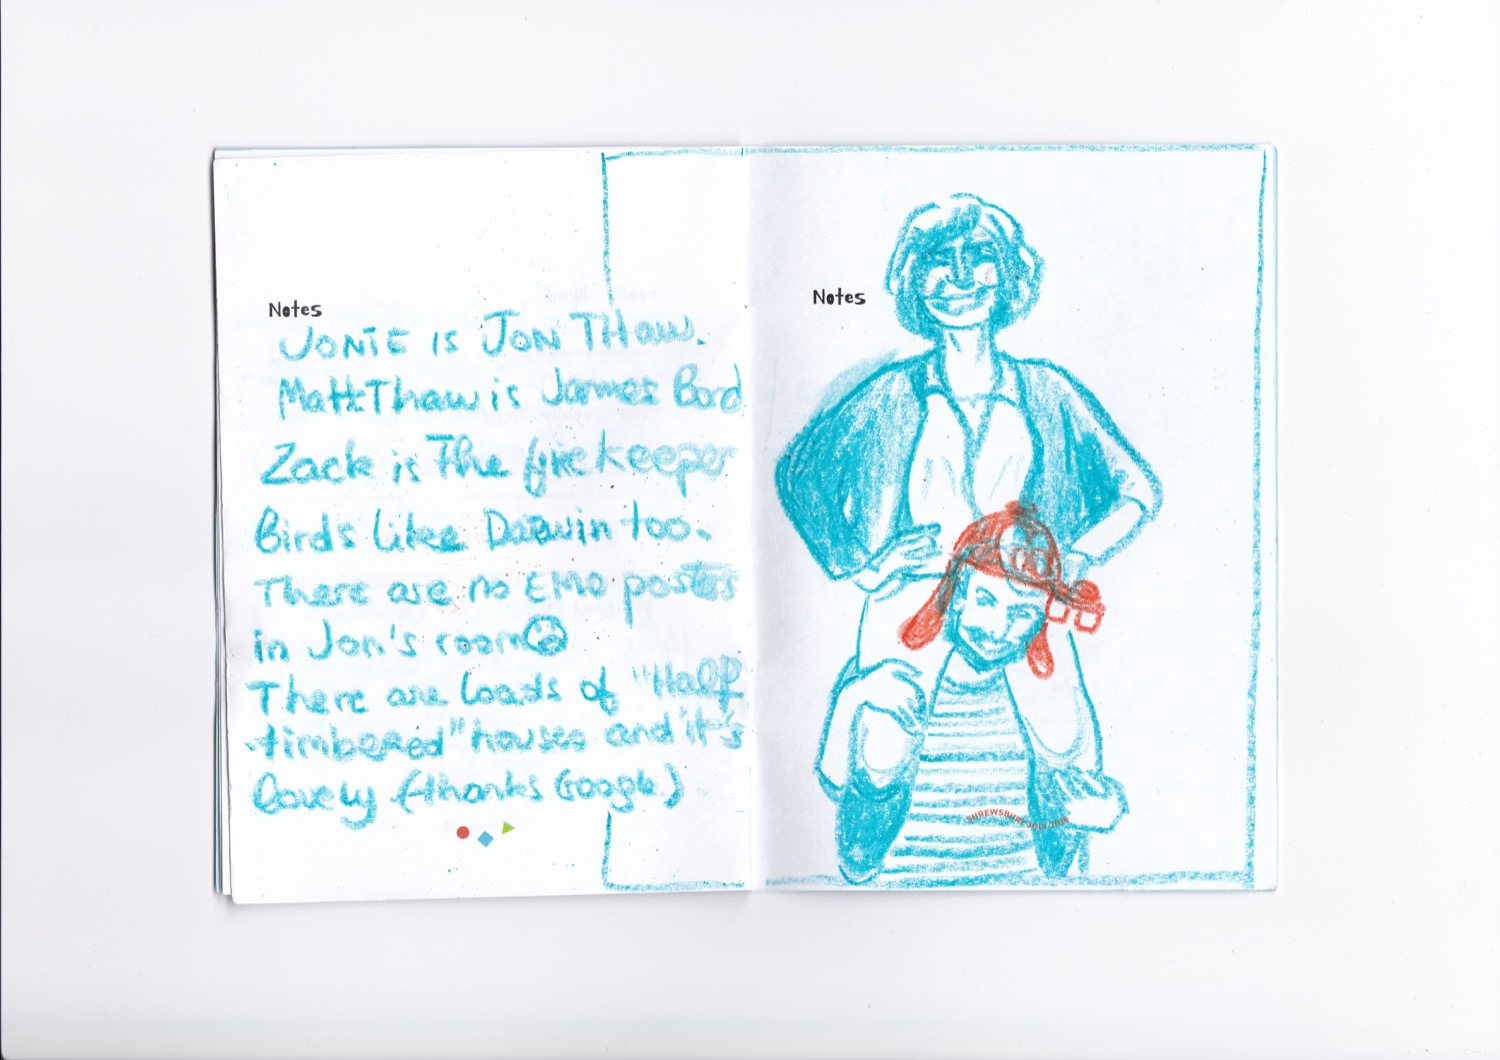 Notes
JONIE IS JON THAW.
Matt Thaw is James Bord
Zack is The fire keeper
Birds like Darwin too.
There are no EMO posters
in Jon's room
There are loads of "Half
timbered" houses and it's
lovely (thanks Google)
Notes
SHREWSBURY JULY 2018